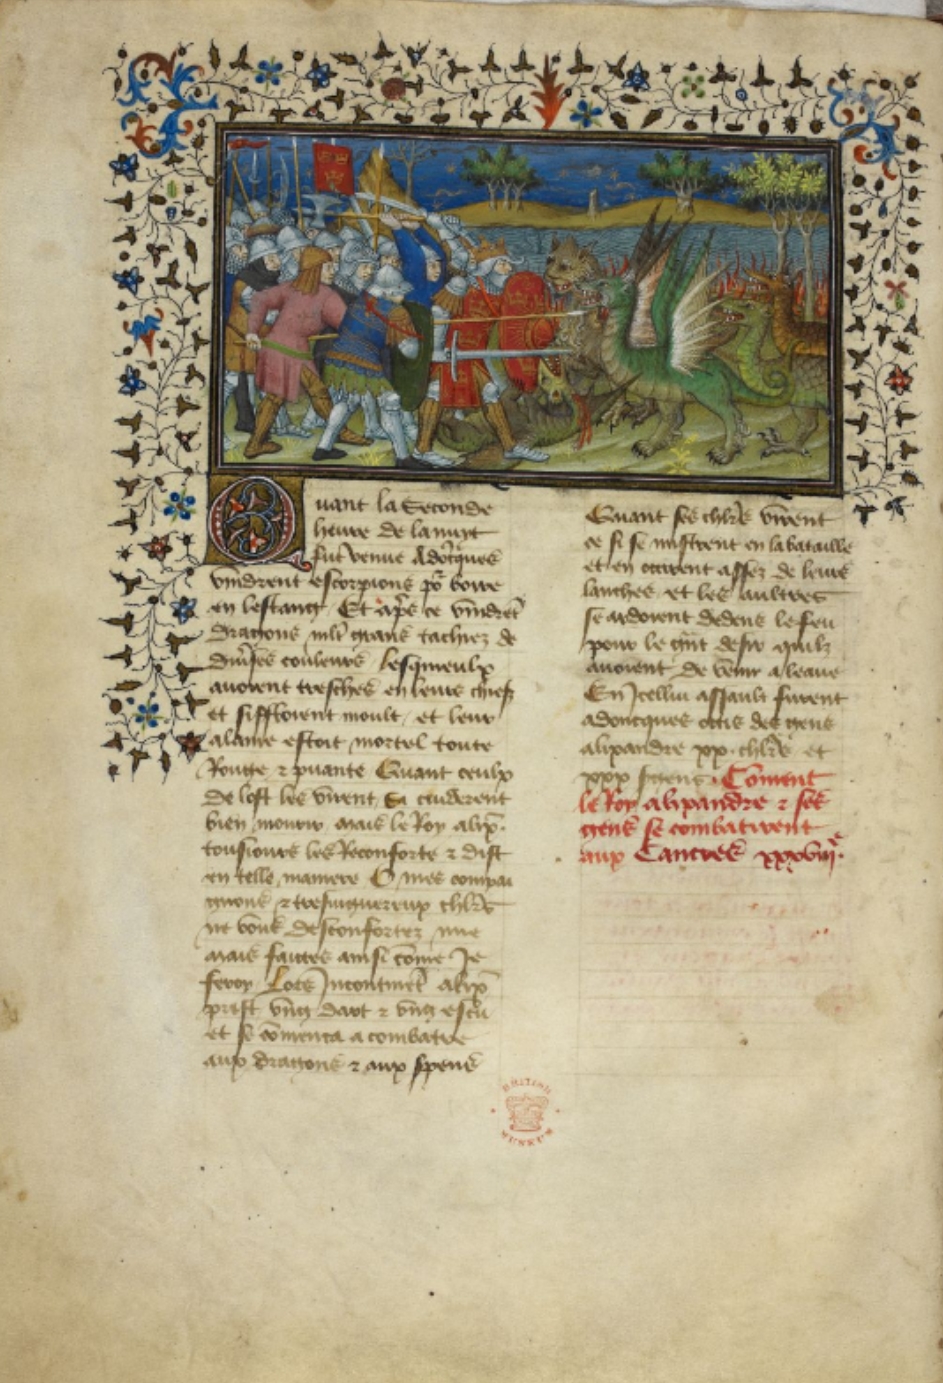 Quant la seconde
heure de la nuyt
fut venue adocques
vindrent escorpions po[ur] boire
en lestang Et apres ce vindret
dragons mlt grans tachiez de
diuses couleurs lesquieulx
auoient cresches en leurs chiefz
et siffloient moult et leur
alaine estoit mortel toute
Route & puante Quant ceulx
de lost les virent Ilz cuiderent
bien mourir mais le Roy alix.
tousiours les Reconforte & dist
en telle maniere O mes compai
gnons & chlrs
ne vous desconfortez mie
mais faittes ainsi come Je
feray Lors Incontinet alix
prist vng dart & vng escu
et se comenca a combatre
aux dragons & aux spens
Quant ses chlrs virent
ce si se mistrent en la bataille
et en occirent assez de leurs
lanches et les aultres
se ardoient dedens le feu
pour le gnt desir quilz
auoient de venir a leaue
En Jcellui assault furent
adoncques occis des gens
alixandre xx. chlrs et
xxx sgens. Coment
le Roy alixandre & ses
gens se combatirent
aux Cancres xxxviii.
BRITISH
MUSEUM